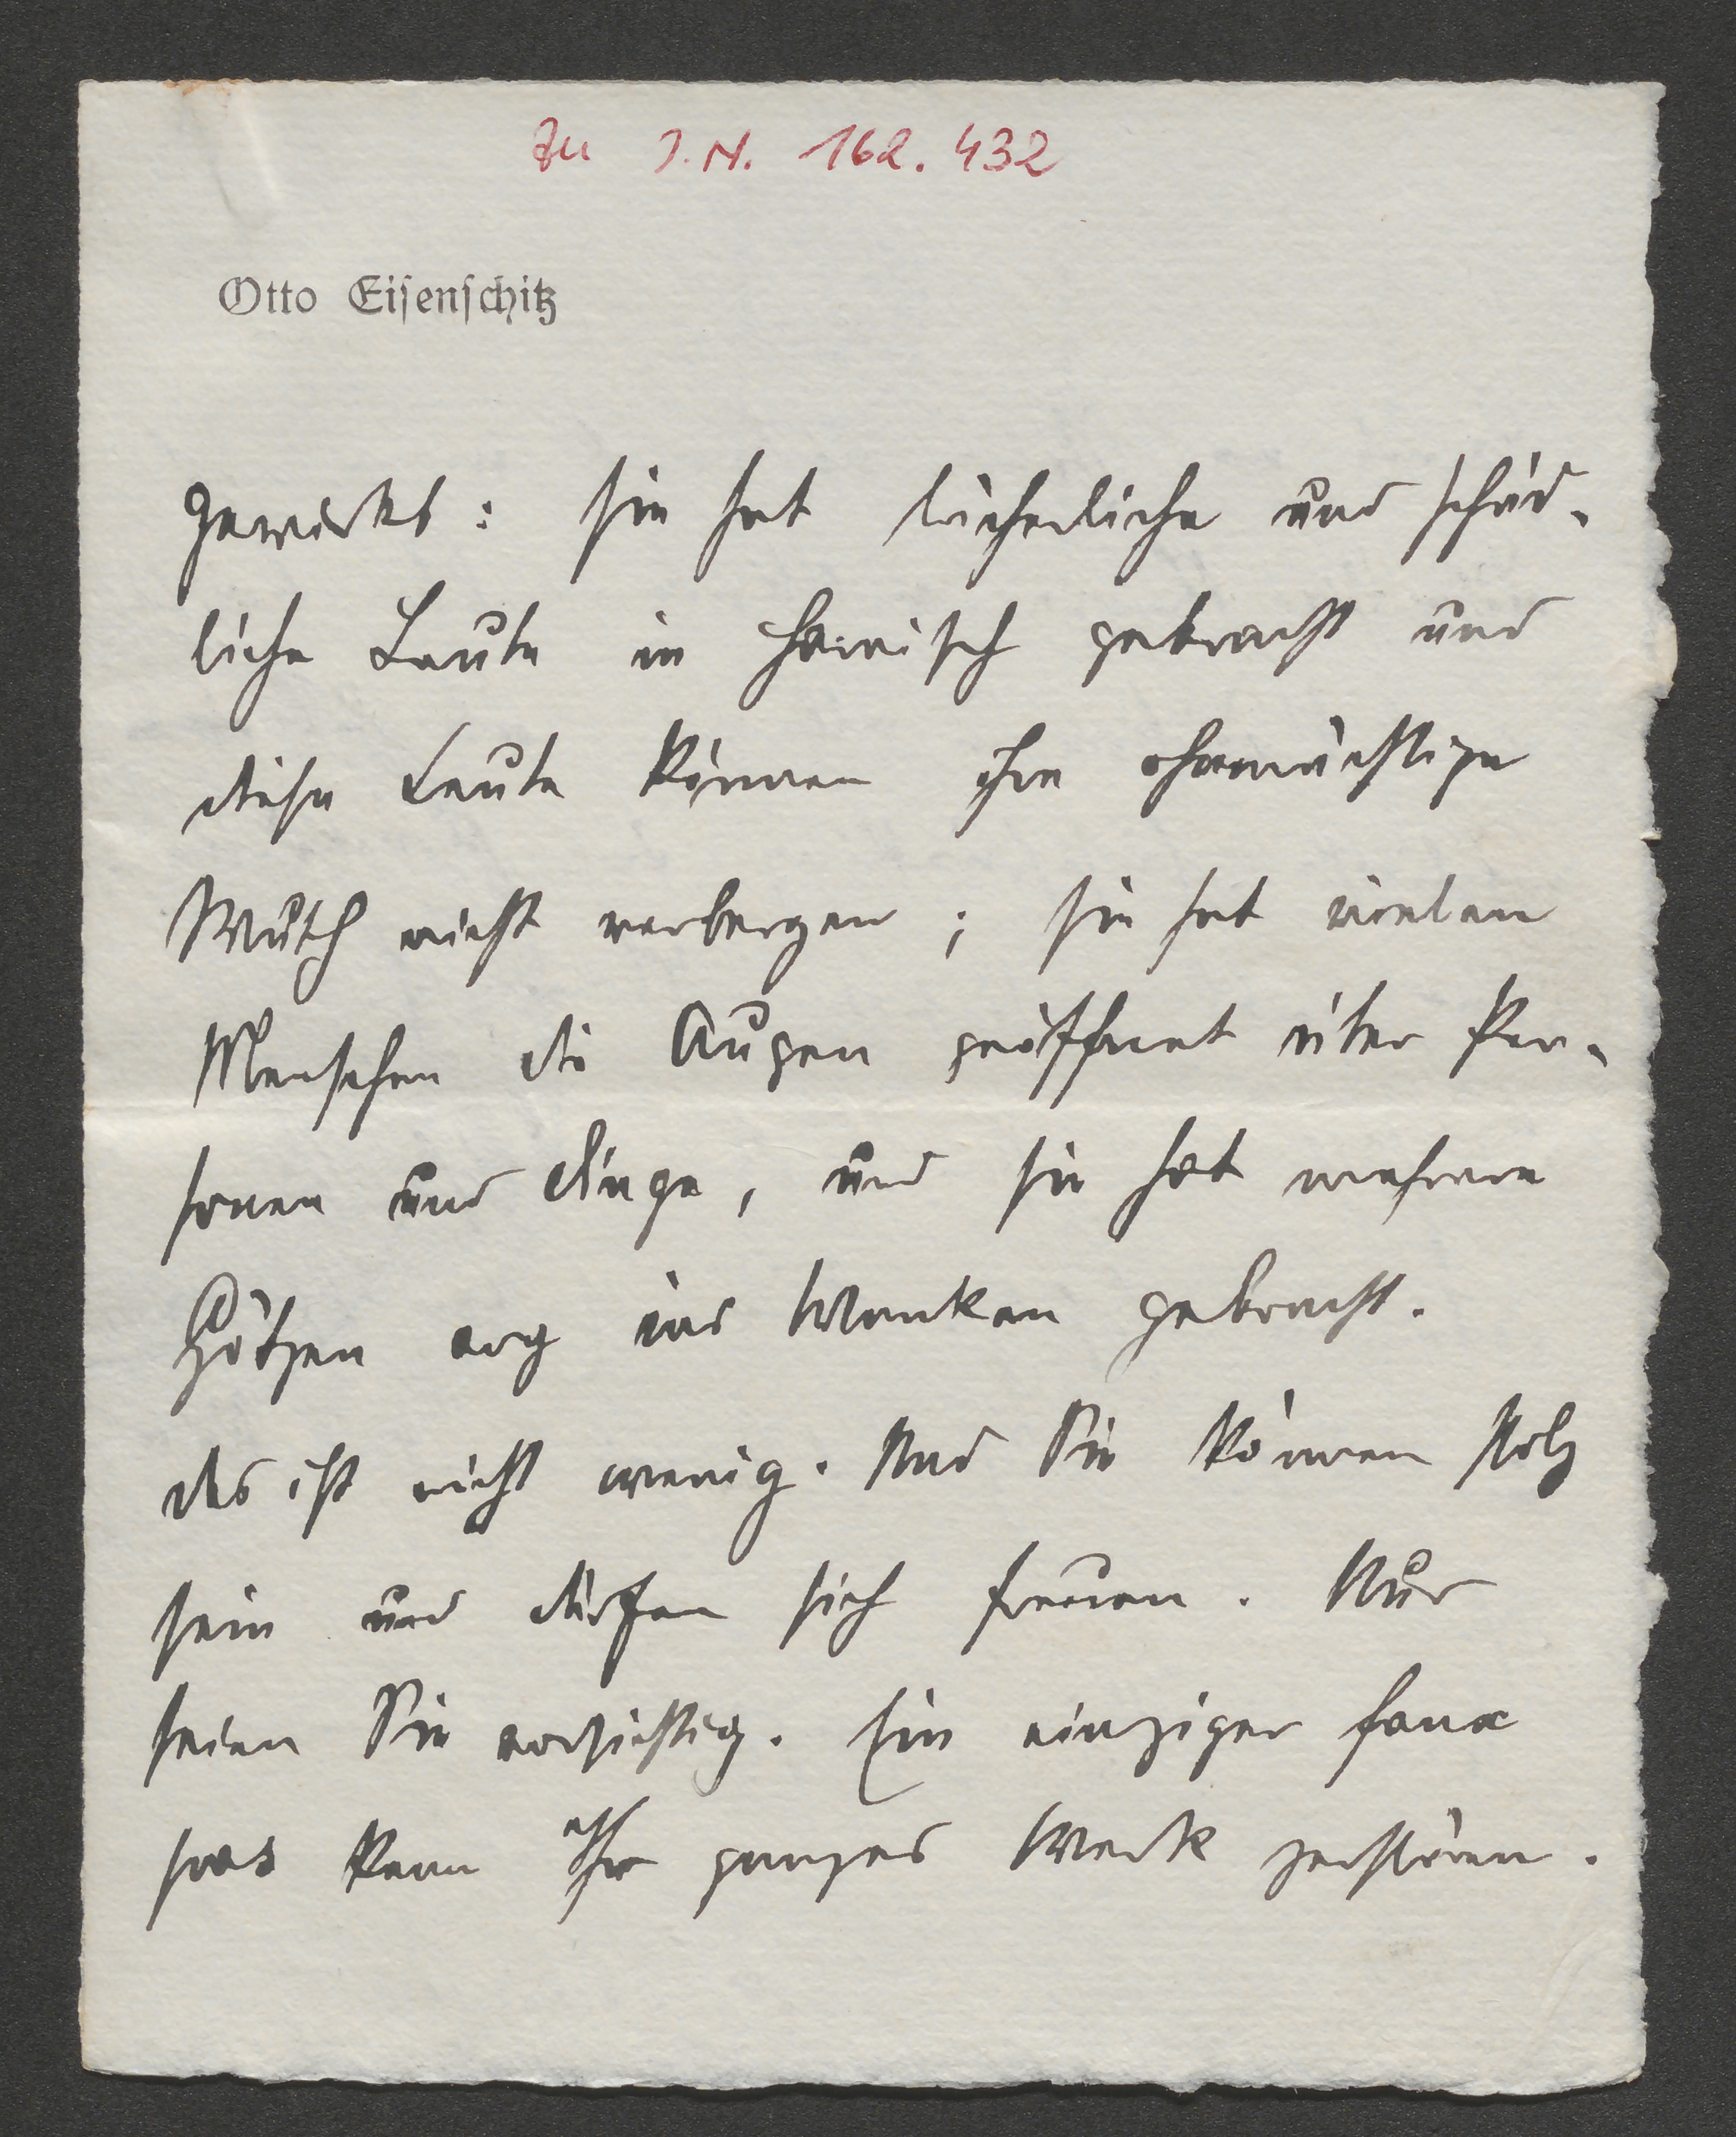 Zu J.N. 162.432
Otto Eisenschitz
gewirkt: sie hat lächerliche und schäd-
liche Leute in Harnisch gebracht und
diese Leute können ihre ohnmächtige
Wuth nicht verbergen; sie hat vielen
Menschen die Augen geöffnet über Per-
sonen und Dinge, und sie hat mehrere
Götzen arg ins Wanken gebracht.
das ist nicht wenig. Und Sie können stolz
sein und dürfen sich freuen. Nur
seien Sie vorsichtig. Ein einziger faux
pas kann Ihr ganzes Werk zerstören.